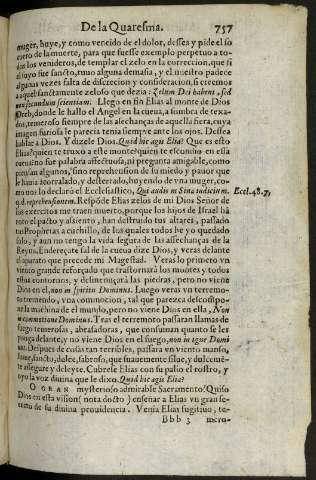 De la Quaresma. 757
muger, huye, y como vencido el dolor, dessea y pide el so
corro de la muerte, para que fuesse exemplo perpetuo a to-
dos los venideros, de templar el zelo en la correccion, que si
al suyo fue sancto, tuuo alguna demasia, y el nuestro padece
algunas vezes falta de discrecion y consideracion, si creemos
a aquel sanctamente zeloso que dezia: Zelum Dei habent, sed
non secundum scientiam. Llego en fin Elias al monte de Dios
Oreb, donde le hallo el Angel en la cueua, a sombra de texa-
dos, temeroso siempre de las assechanças de aquella fiera, cuya
imagen furiosa le parecia tenia siempre ante los ojos. Dessea
hablar a Dios. Y dizele Dios. Quid hic agis Elia? Que es esto
Elias? quien te truxo a este monte? quien te escondio en essa
cueua? no fue palabra affectuosa, ni pregunta amigable, como
piensan algunos, sino reprehension de su miedo y pauor que
le trahia acorralado, y desterrado, huyendo de vna muger, co-
mo nos lo declarò el Ecclesiastico, Qui audis in Sina iudicium.
Eccl. 48. 7,
q.d. reprehensionem. Respõde Elias zelos de mi Dios Señor de
los exercitos me traen muerto, porque los hijos de Israel hã
roto el pacto y assiento, han destruido tus altares, passado
tus Prophetas a cuchillo, de los quales todos he yo quedado
solo, y aun no tengo la vida segura de las assechanças de la
Reyna. Endereçate fal de la cueua dize Dios, y veras delante
el aparato que precede mi Magestad. Veras lo primero vn
viento grande reforçado que trastornarà los montes y todos
estos contornos, y desmenuçara las piedras, pero no viene
Dios en el, non in spiritu Dominus. Luego veras vn terremo-
to tremendo, vna commocion, tal que parezca descompo-
ner la machina de el mundo, pero no viene Dios en ella, Non
in commotione Dominus. Tras el terremoto passaran llamas de
fuego temerosas, abrasadoras, que consuman quanto se les
ponga delante, y no viene Dios en el fuego, non in igne Domi
nus. Despues de cosas tan terribles, passara vn viento manso,
suaue, sancto, dulce, sabroso, que suauemente silue, y dulcemē-
te assegure y deleyte. Cubrese Elias con su palio el rostro, y
oyo la voz diuina que le dixo. Quid hic agis Elia?
O GRAN mysterio! o admirable Sacramento! Quiso
Dios en esta vision (nota docto) enseñar a Elias vn gran se-
creto de su diuina prouidencia. Venia Elias fugitiuo, te-
Bbb 3 mero-